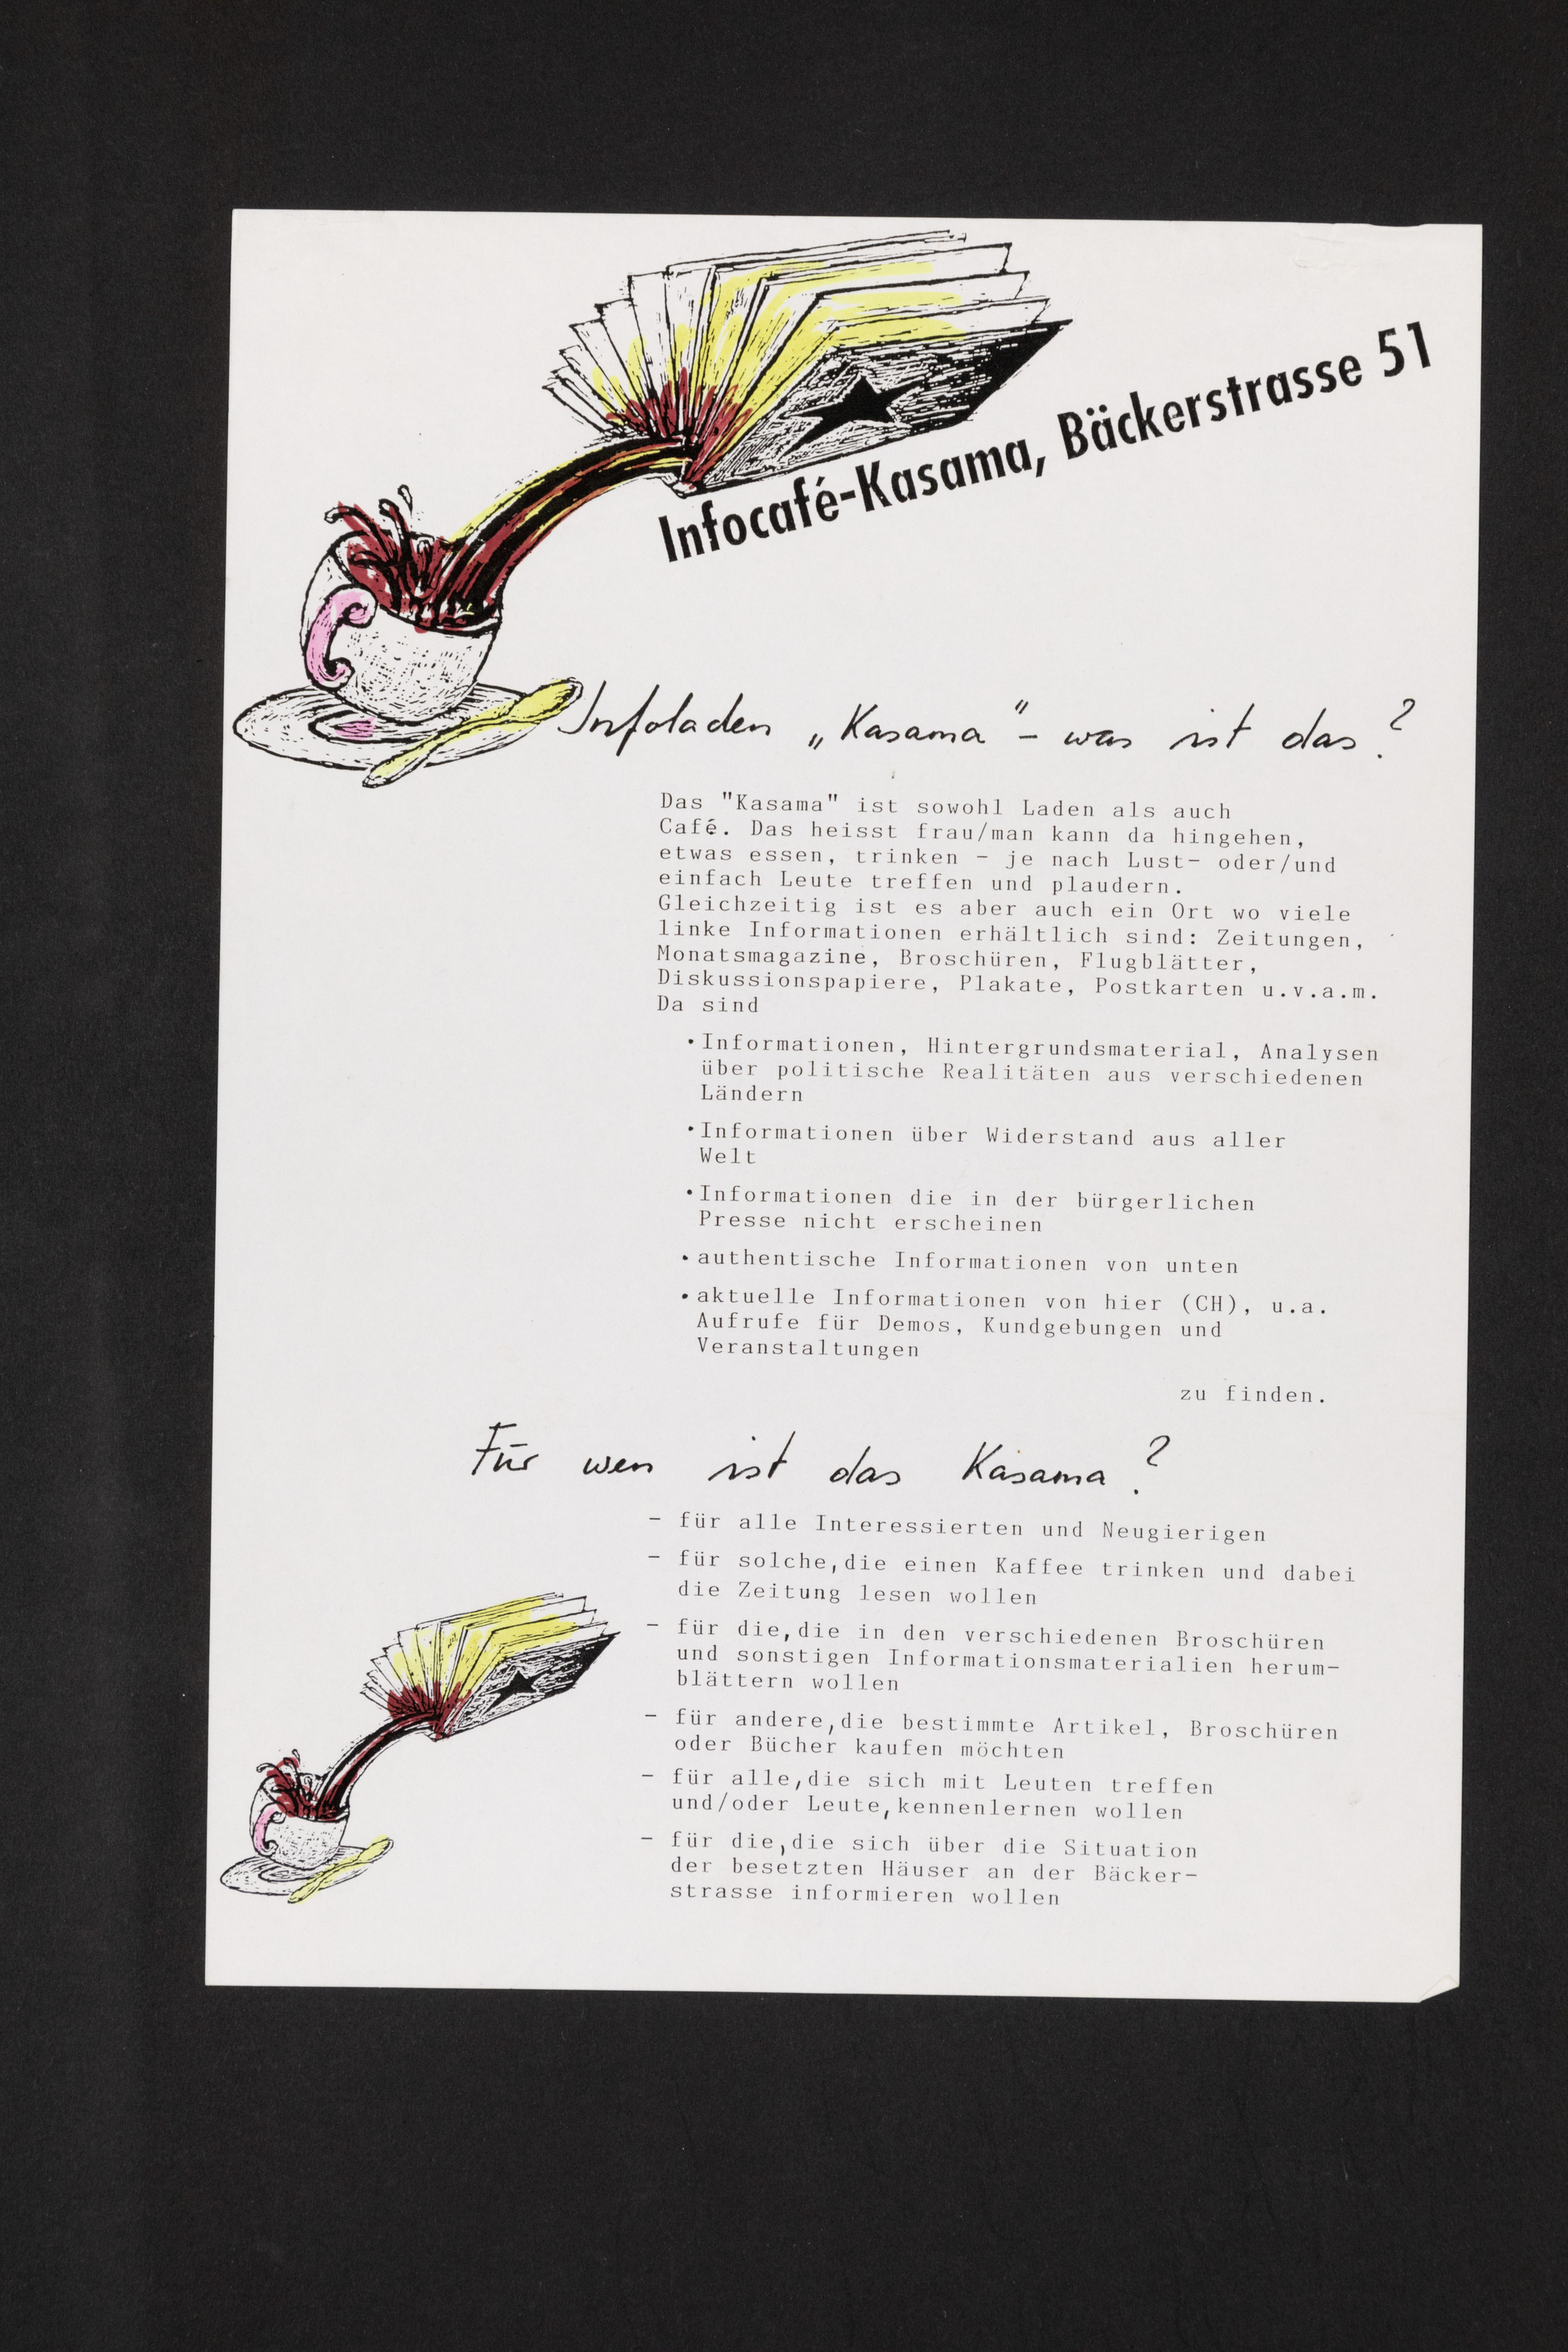 Infocafé-Kasama, Bäckerstrasse 51
Infoladen „Kasama" - was ist das?
Das "Kasama" ist sowohl Laden als auch
Café. Das heisst frau/man kann da hingehen,
etwas essen, trinken - je nach Lust- oder/und
einfach Leute treffen und plaudern.
Gleichzeitig ist es aber auch ein Ort wo viele
linke Informationen erhältlich sind: Zeitungen,
Monatsmagazine, Broschüren, Flugblätter,
Diskussionspapiere, Plakate, Postkarten u.v.a.m.
Da sind
•Informationen, Hintergrundsmaterial, Analysen
über politische Realitäten aus verschiedenen
Ländern
•Informationen über Widerstand aus aller
Welt
•Informationen die in der bürgerlichen
Presse nicht erscheinen
•authentische Informationen von unten
•aktuelle Informationen von hier (CH), u.a.
Aufrufe für Demos, Kundgebungen und
Veranstaltungen
zu finden.
Für wen ist das Kasama?
- für alle Interessierten und Neugierigen
- für solche,die einen Kaffee trinken und dabei
die Zeitung lesen wollen
- für die,die in den verschiedenen Broschüren
und sonstigen Informationsmaterialien herum-
blättern wollen
- für andere,die bestimmte Artikel, Broschüren
oder Bücher kaufen möchten
- für alle,die sich mit Leuten treffen
und/oder Leute,kennenlernen wollen
- für die,die sich über die Situation
der besetzten Häuser an der Bäcker-
strasse informieren wollen